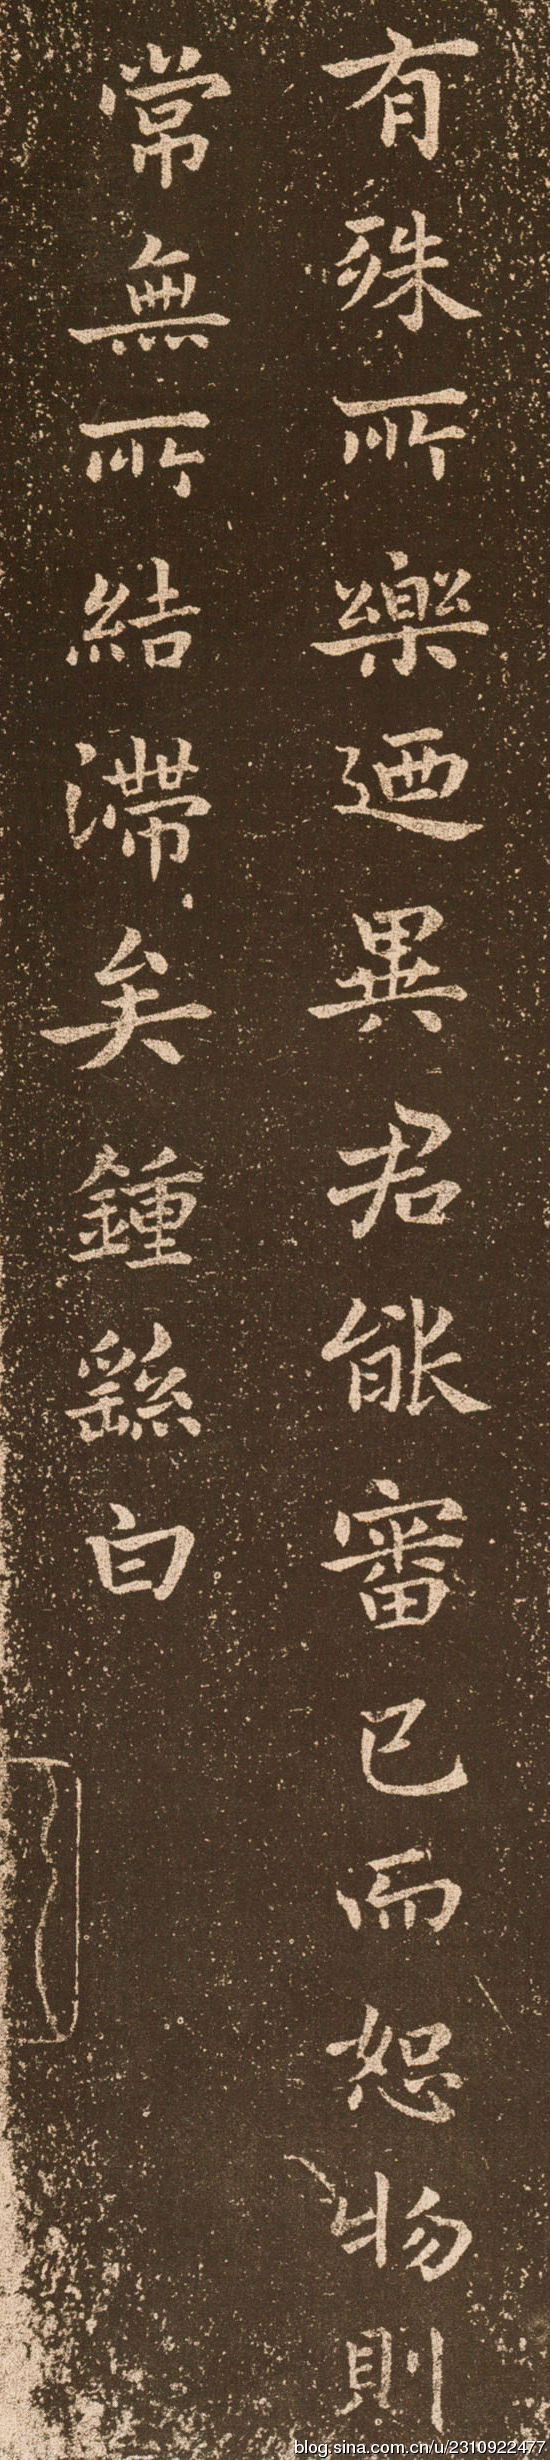 有殊所樂迺異君能審己而恕物則
常無所結滯矣鍾繇白
blog.sina.com.cn/u/2310922477